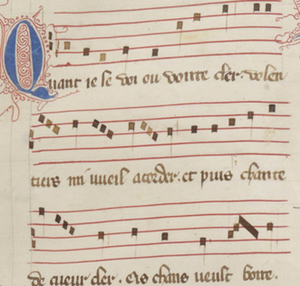 Quant ie le voi ou voirre cler volen
tiers mi vueil acorder. et puis chante
de cueur cler. cis chans veult boire.